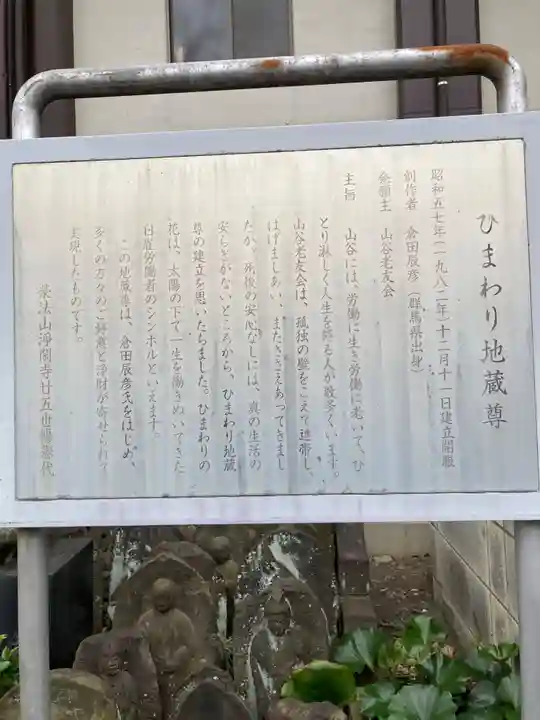 ひまわり地蔵尊
昭和五七年(一九八二年)十二月十一日建立開眼
創作者　倉田辰彦(群馬県出身)
発願主　山谷老友会
主旨　山谷には、労働に生き労働に老いて、ひ
とり淋しく人生を終る人が数多くいます。
山谷老友会は、孤独の壁をこえて連帯し、
はげましあい、またささえあってきまし
たが、死後の安心なしには、真の生活の
安らぎがないところから、ひまわり地蔵
尊の建立を思いたちました。ひまわりの
花は、太陽の下で一生を働きぬいてきた
日雇労働者のシンボルといえます。
この地蔵尊は、倉田辰彦氏をはじめ、
多くの方々のご好意と浄財が寄せられて
実現したものです。
栄法山浄閑寺廿五世